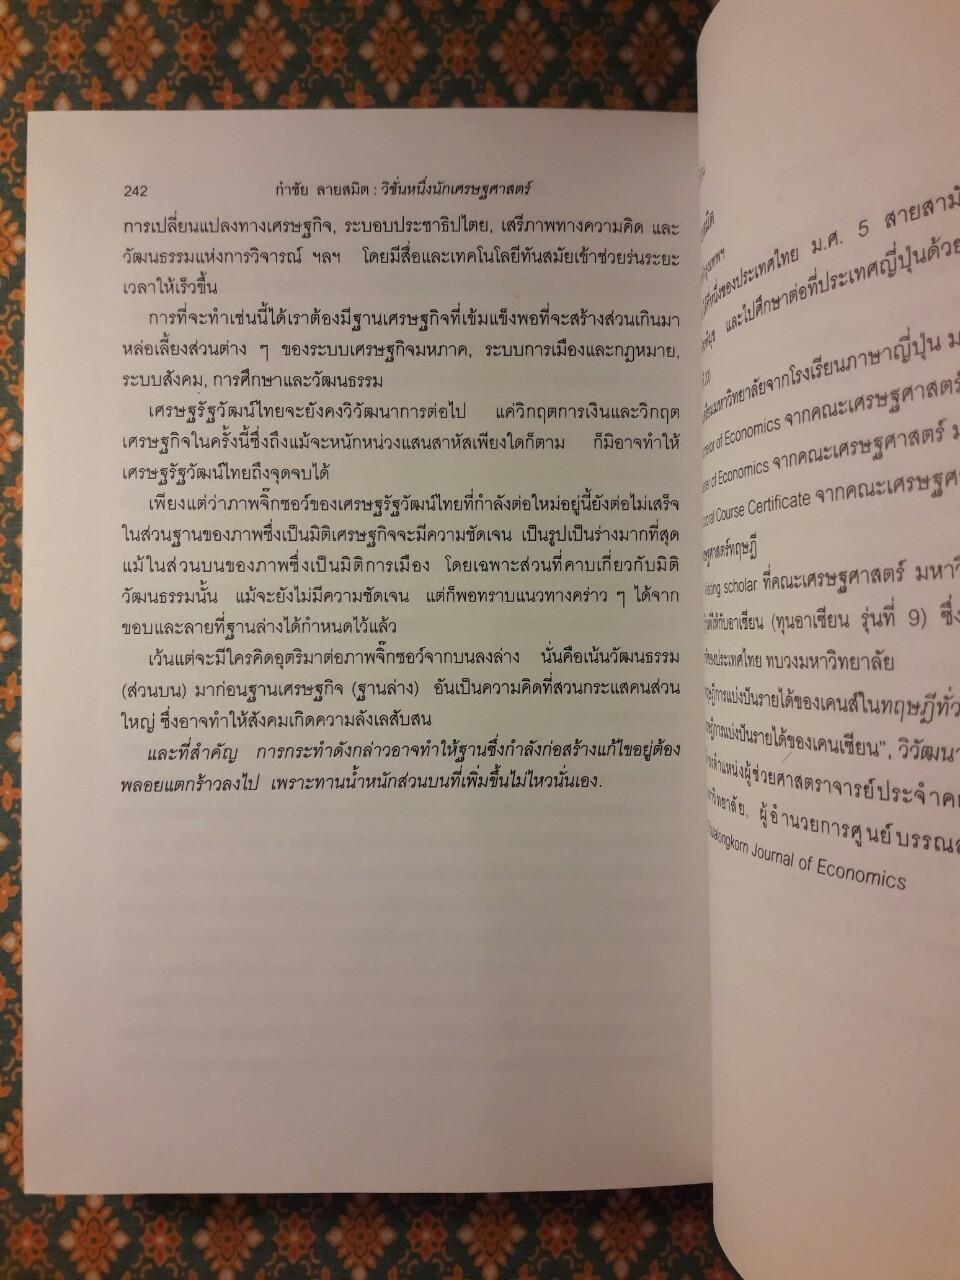 242
กำชัย ลายสมิต : วิชั่นหนึ่งนักเศรษฐศาสตร์
การเปลี่ยนแปลงทางเศรษฐกิจ, ระบอบประชาธิปไตย, เสรีภาพทางความคิด และ
วัฒนธรรมแห่งการวิจารณ์ ฯลฯ โดยมีสื่อและเทคโนโลยีทันสมัยเข้าช่วยร่นระยะ
เวลาให้เร็วขึ้น
การที่จะทำเช่นนี้ได้เราต้องมีฐานเศรษฐกิจที่เข้มแข็งพอที่จะสร้างส่วนเกินมา
หล่อเลี้ยงส่วนต่าง ๆ ของระบบเศรษฐกิจมหภาค, ระบบการเมืองและกฎหมาย,
ระบบสังคม, การศึกษาและวัฒนธรรม
เศรษฐรัฐวัฒน์ไทยจะยังคงวิวัฒนาการต่อไป แค่วิกฤตการเงินและวิกฤต
เศรษฐกิจในครั้งนี้ซึ่งถึงแม้จะหนักหน่วงแสนสาหัสเพียงใดก็ตาม ก็มิอาจทำให้
เศรษฐรัฐวัฒน์ไทยถึงจุดจบได้
เพียงแต่ว่าภาพจิ๊กซอว์ของเศรษฐรัฐวัฒน์ไทยที่กำลังต่อใหม่อยู่นี้ยังต่อไม่เสร็จ
ในส่วนฐานของภาพซึ่งเป็นมิติเศรษฐกิจจะมีความชัดเจน เป็นรูปเป็นร่างมากที่สุด
แม้ในส่วนบนของภาพซึ่งเป็นมิติการเมือง โดยเฉพาะส่วนที่คาบเกี่ยวกับมิติ
วัฒนธรรมนั้น แม้จะยังไม่มีความชัดเจน แต่ก็พอทราบแนวทางคร่าว ๆ ได้จาก
ขอบและลายที่ฐานล่างได้กำหนดไว้แล้ว
เว้นแต่จะมีใครคิดอุตริมาต่อภาพจิ๊กซอว์จากบนลงล่าง นั่นคือเน้นวัฒนธรรม
(ส่วนบน) มาก่อนฐานเศรษฐกิจ (ฐานล่าง) อันเป็นความคิดที่สวนกระแสคนส่วน
ใหญ่ ซึ่งอาจทำให้สังคมเกิดความลังเลสับสน
และที่สำคัญ การกระทำดังกล่าวอาจทำให้ฐานซึ่งกำลังก่อสร้างแก้ไขอยู่ต้อง
พลอยแตกร้าวลงไป เพราะทานน้ำหนักส่วนบนที่เพิ่มขึ้นไม่ไหวนั่นเอง.
ของประเทศไทย ม.ศ. 5 สายสามั
และไปศึกษาต่อที่ประเทศญี่ปุ่นด้วย
มหาวิทยาลัยจากโรงเรียนภาษาญี่ปุ่น ม
of Economics จากคณะเศรษฐศาสตร์
of Economics จากคณะเศรษฐศาสตร์ ม
Course Certificate จากคณะเศรษฐศ
scholar ที่คณะเศรษฐศาสตร์ มหาวิ
ให้กับอาเซียน (ทุนอาเซียน รุ่นที่ 9) ซึ่ง
ประเทศไทย ทบวงมหาวิทยาลัย
การแบ่งปันรายได้ของเคนส์ในทฤษฎีทั่ว
การแบ่งปันรายได้ของเคนเซียน", วิวัฒนา
ตำแหน่งผู้ช่วยศาสตราจารย์ประจำค
วิทยาลัย, ผู้อำนวยการศูนย์บรรณส
Journal of Economics